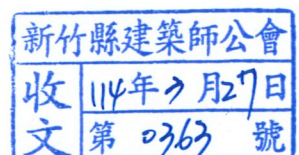 新竹縣建築師公會
收文
114年3月27日
第0363號